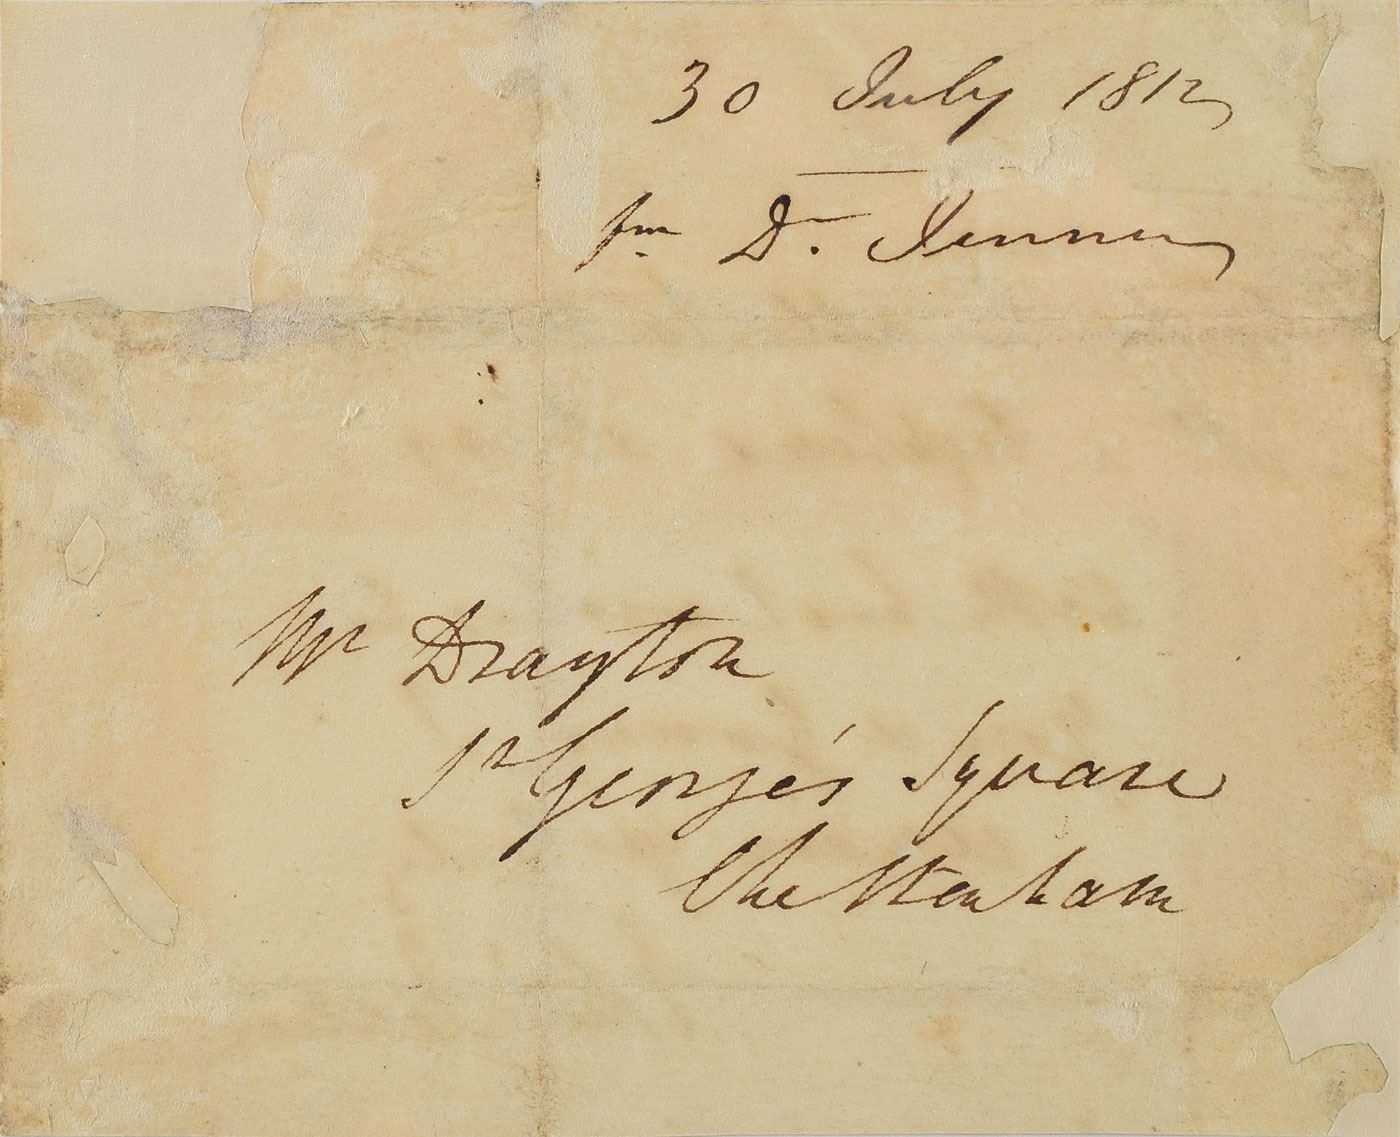 30 July 1812
fm Dr. Jenner
Mr Drayton
St George's Square
Cheltenham